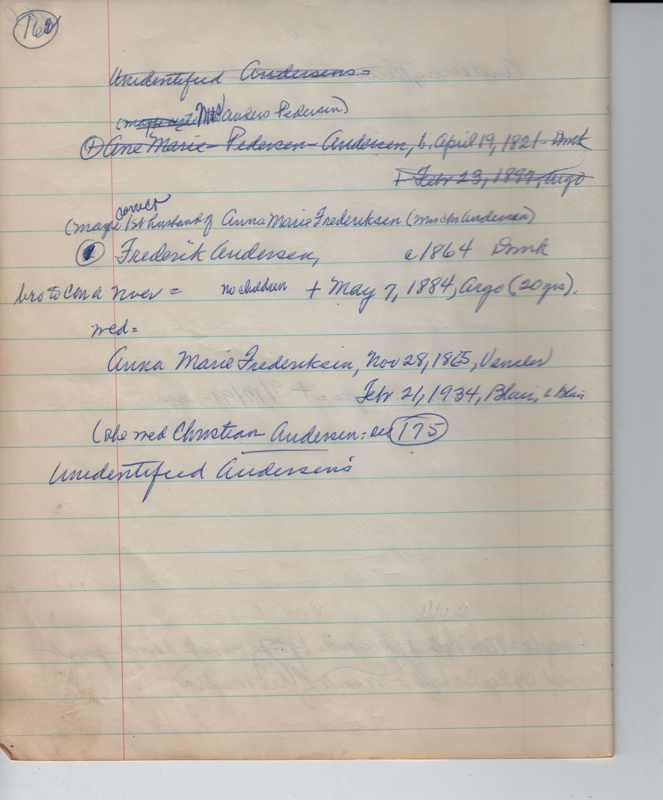 162
Unidentified Andersens
(maybe Mrs Anders Pedersen)
Ane Marie - Pedersen - Andersen, b. April 19, 1821 - Dmk
+ Febr 23, 1897, Argo
correct
(maybe 1st husband of Anna Marie Frederiksen (Mrs Chr Andersen)
1 Frederik Andersen, c 1864 Dmk
bro to = no children + May 7, 1884, Argo (20 yrs).
wed =
Anna Marie Frederiksen, Nov 28, 1865,
Febr 21, 1934, Blair, c Blair
(she wed Christian Andersen: see 175
Unidentified Andersens